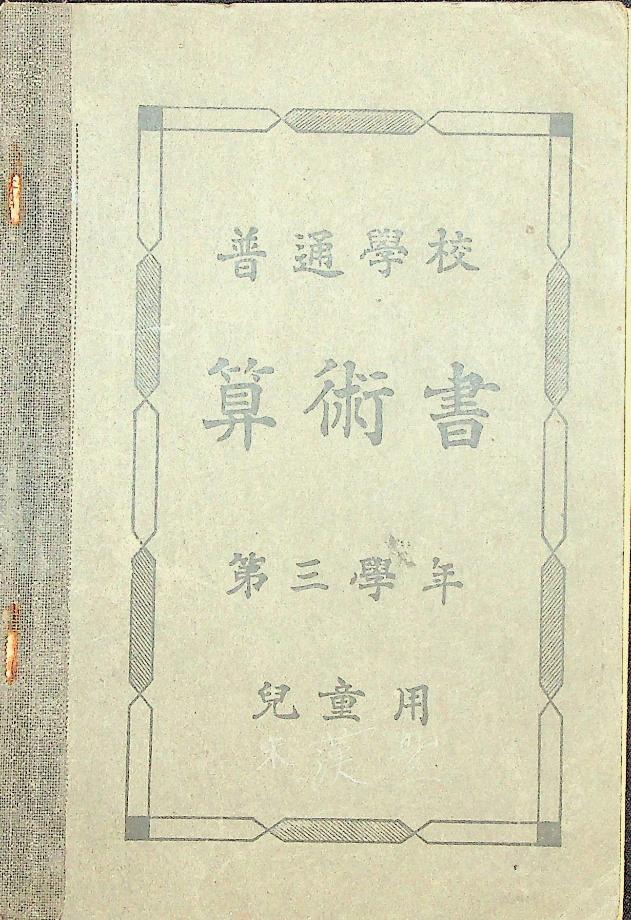 普通學校
算術書
第三學年
兒童用